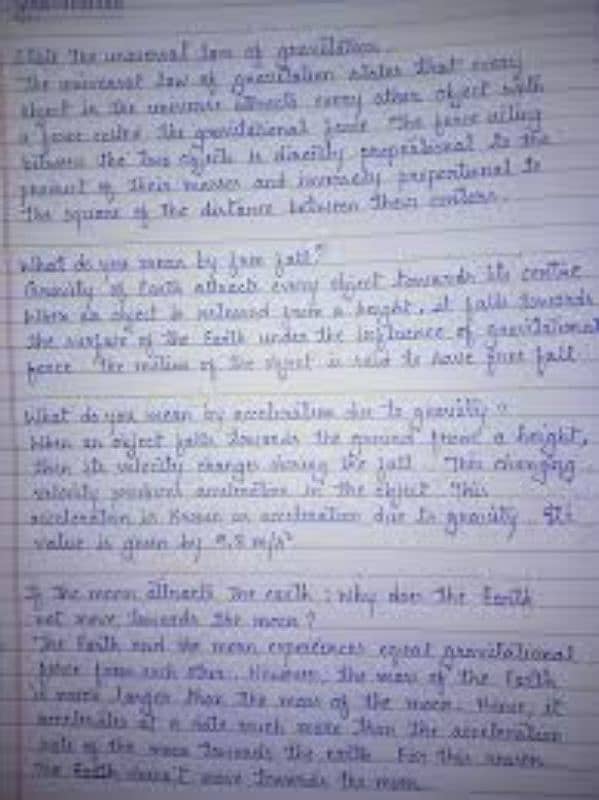 Gravitation
State the universal law of gravitation.
The universal law of gravitation states that every
object in the universe attracts every other object with
a force called the gravitational force. The force acting
between the two objects is directly proportional to the
product of their masses and inversely proportional to
the square of the distance between their centers.
What do you mean by free fall?
Gravity of Earth attracts every object towards its centre
When an object is released from a height, it falls towards
the surface of the Earth under the influence of gravitational
force. The motion of the object is said to have free fall
What do you mean by acceleration due to gravity?
When an object falls towards the ground from a height,
then its velocity changes during the fall. This changing
velocity produces acceleration in the object. This
acceleration is known as acceleration due to gravity. Its
value is given by 9.8 m/s²
If the moon attracts the earth; why does the Earth
not move towards the moon?
The Earth and the moon experiences equal gravitational
force from each other. However, the mass of the Earth
is much larger than the mass of the moon. Hence, it
accelerates at a rate much more than the acceleration
rate of the moon towards the earth. For this reason
The Earth doesn't move towards the moon